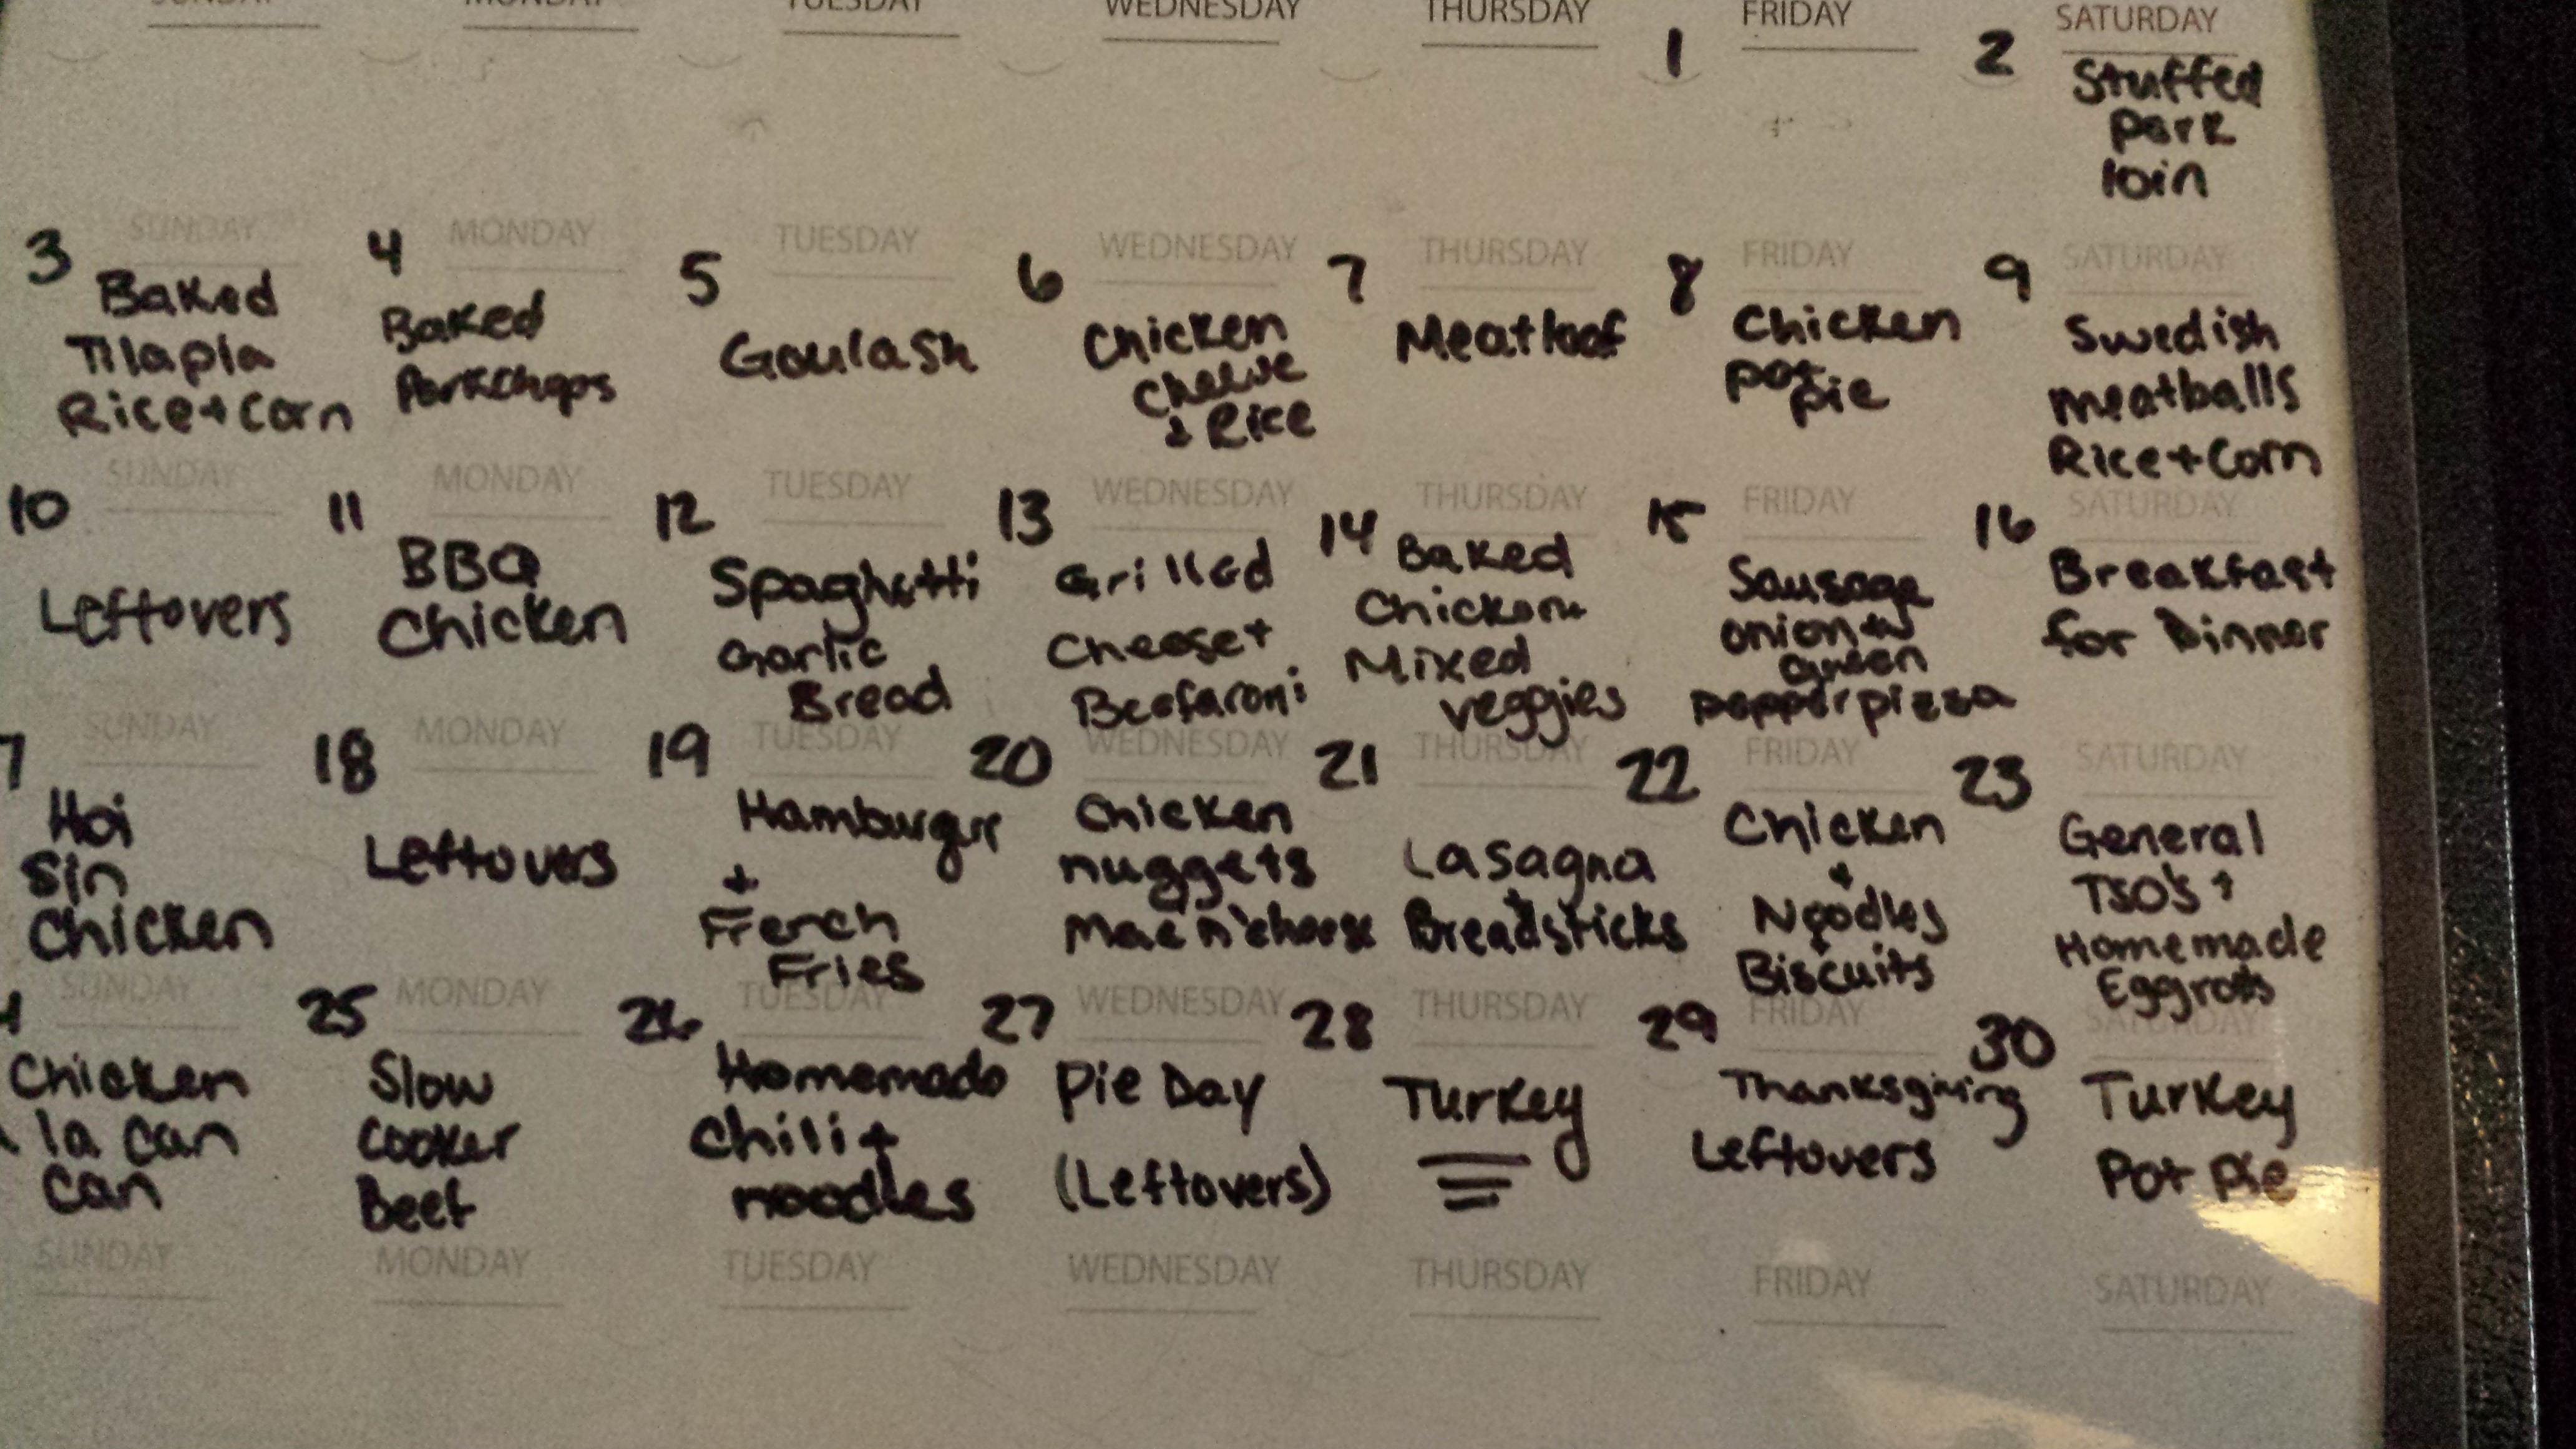 SUNDAY MONDAY TUESDAY WEDNESDAY THURSDAY FRIDAY SATURDAY
1
2
Stuffed
Pork
loin
SUNDAY MONDAY TUESDAY WEDNESDAY THURSDAY FRIDAY SATURDAY
3
Baked
Tilapia
Rice + Corn
4
Baked
Porkchops
5
Goulash
6
Chicken
Cheese
& Rice
7
Meatloaf
8
Chicken
pot
pie
9
Swedish
meatballs
Rice + Corn
SUNDAY MONDAY TUESDAY WEDNESDAY THURSDAY FRIDAY SATURDAY
10
Leftovers
11
BBQ
Chicken
12
Spaghetti
Garlic
Bread
13
Grilled
Cheese +
Beefaroni
14
Baked
Chicken +
Mixed
veggies
15
Sausage
onion +
green
pepper pizza
16
Breakfast
for Dinner
SUNDAY MONDAY TUESDAY WEDNESDAY THURSDAY FRIDAY SATURDAY
7
Hoi
Sin
Chicken
18
Leftovers
19
Hamburger
+
French
Fries
20
Chicken
nuggets
Mac n' cheese
21
Lasagna
+
Breadsticks
22
Chicken
+
Noodles
Biscuits
23
General
TSO's +
Homemade
Eggrolls
SUNDAY MONDAY TUESDAY WEDNESDAY THURSDAY FRIDAY SATURDAY
4
Chicken
la can
can
25
Slow
Cooker
Beef
26
Homemade
Chili +
noodles
27
Pie Day
(Leftovers)
28
Turkey
29
Thanksgiving
Leftovers
30
Turkey
Pot Pie
SUNDAY MONDAY TUESDAY WEDNESDAY THURSDAY FRIDAY SATURDAY